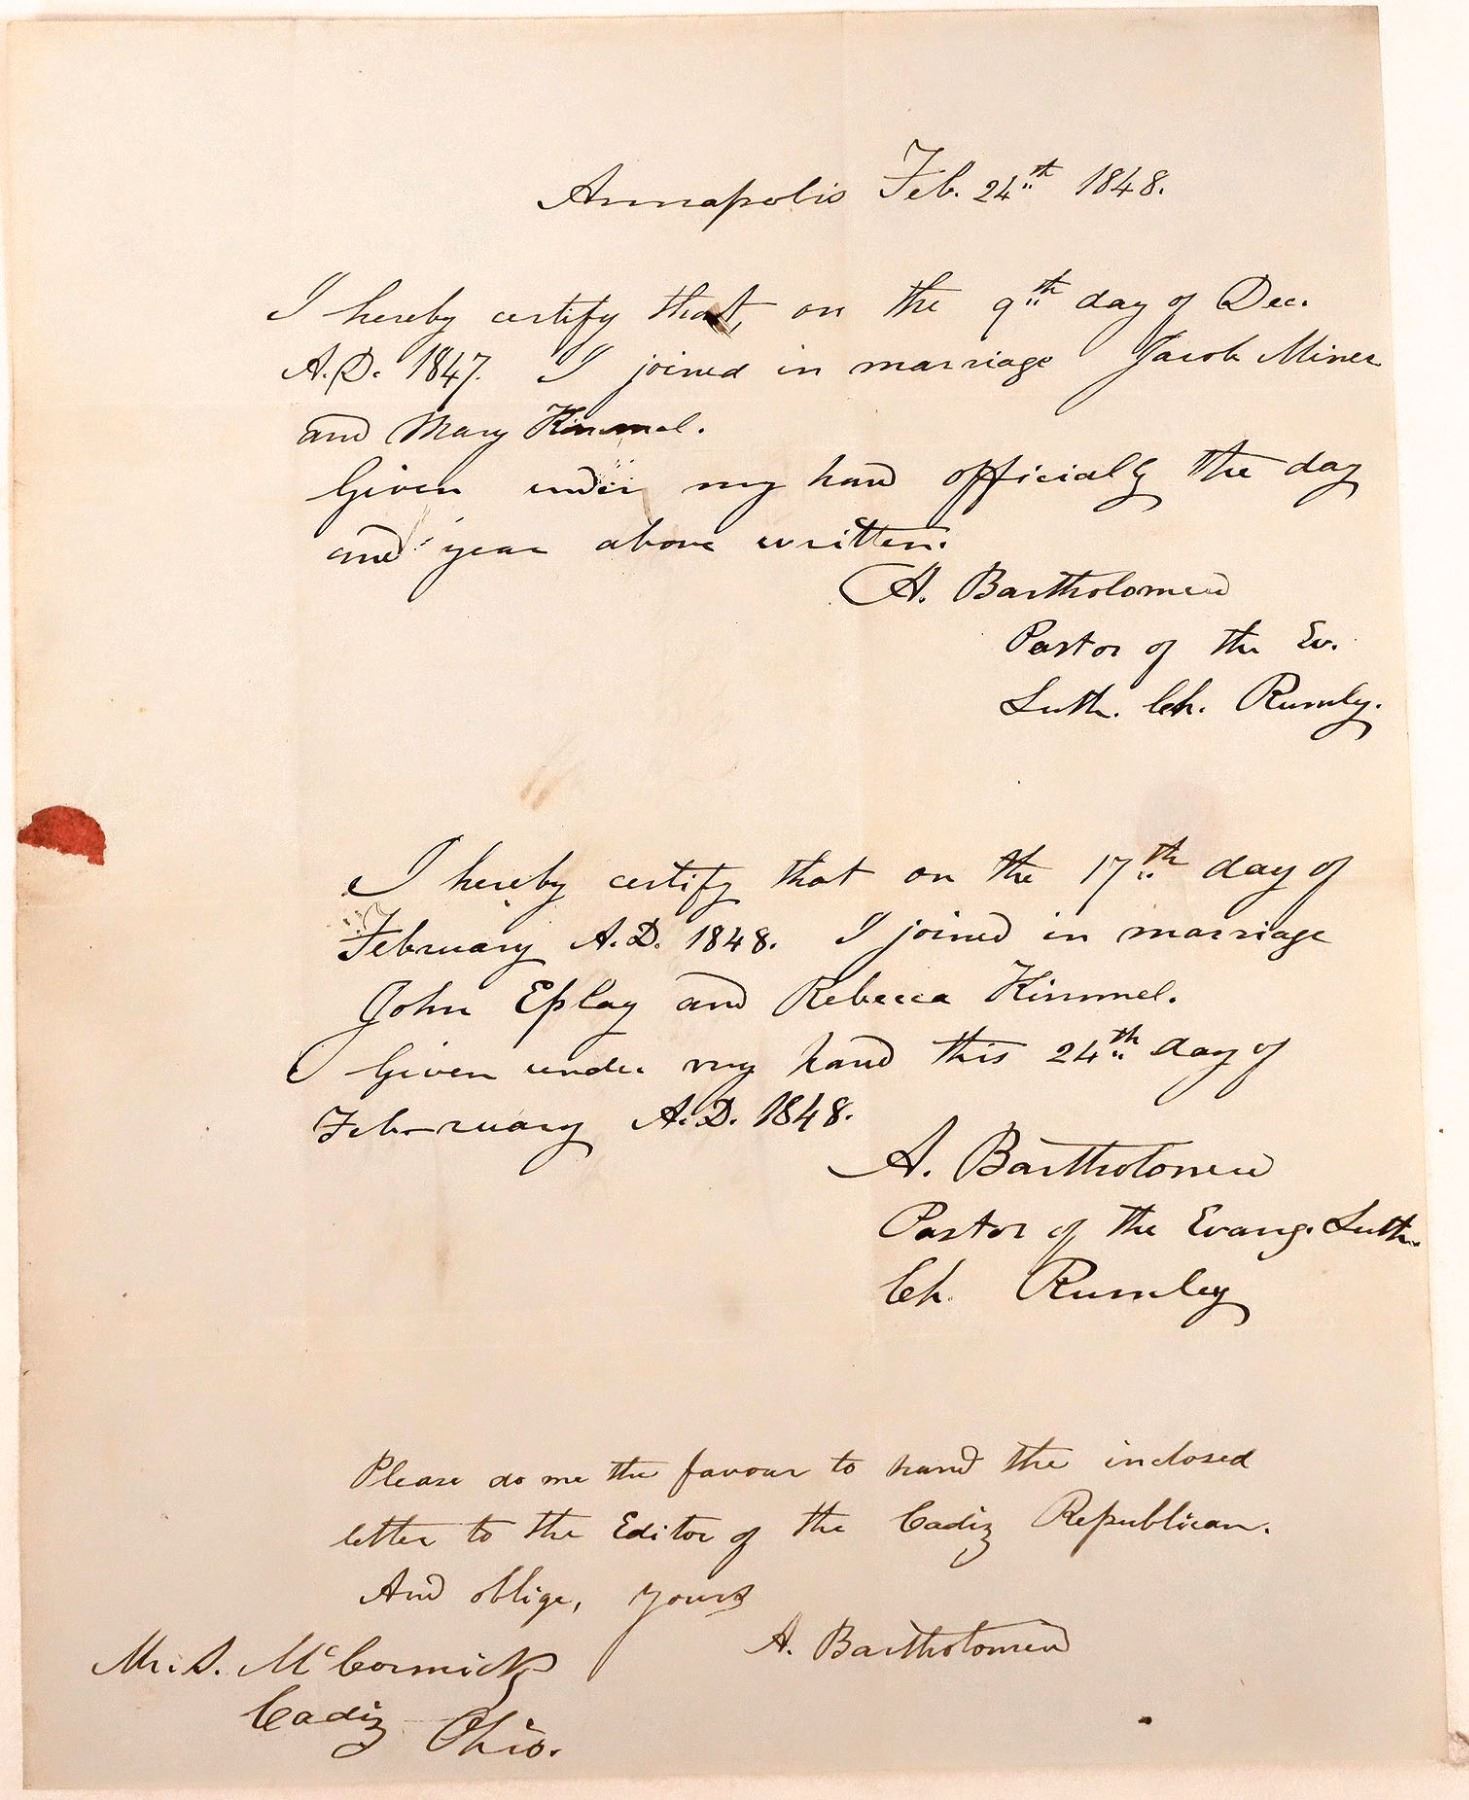 Annapolis Feb. 24th 1848.
I hereby certify that, on the 9th day of Dec.
A.D. 1847. I joined in marriage Jacob Miner
and Mary Kimmel.
Given under my hand officially the day
and year above written.
A. Bartholomew
Pastor of the Ev.
Luth. Ch. Rumly.
I hereby certify that on the 17th day of
February A.D. 1848. I joined in marriage
John Eplay and Rebecca Kimmel.
Given under my hand this 24th day of
February A.D. 1848.
A. Bartholomew
Pastor of the Evang. Luth.
Ch. Rumley
Please do me the favour to hand the inclosed
letter to the Editor of the Cadiz Republican.
And oblige, yours
A. Bartholomew
Mr. S. McCormick
Cadiz Ohio.